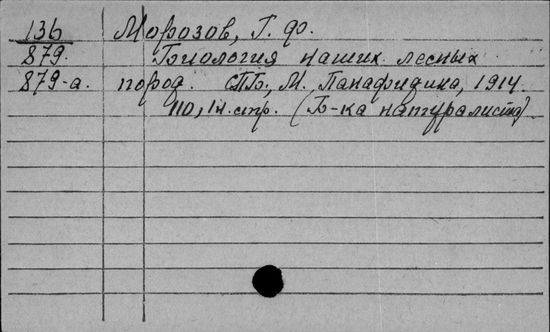 136 Морозов, Г. Ф.
879. Биология наших лесных
879-а. пород. СПБ, М. Панафидина, 1914.
110, 1 н. стр. (Б-ка натуралиста)